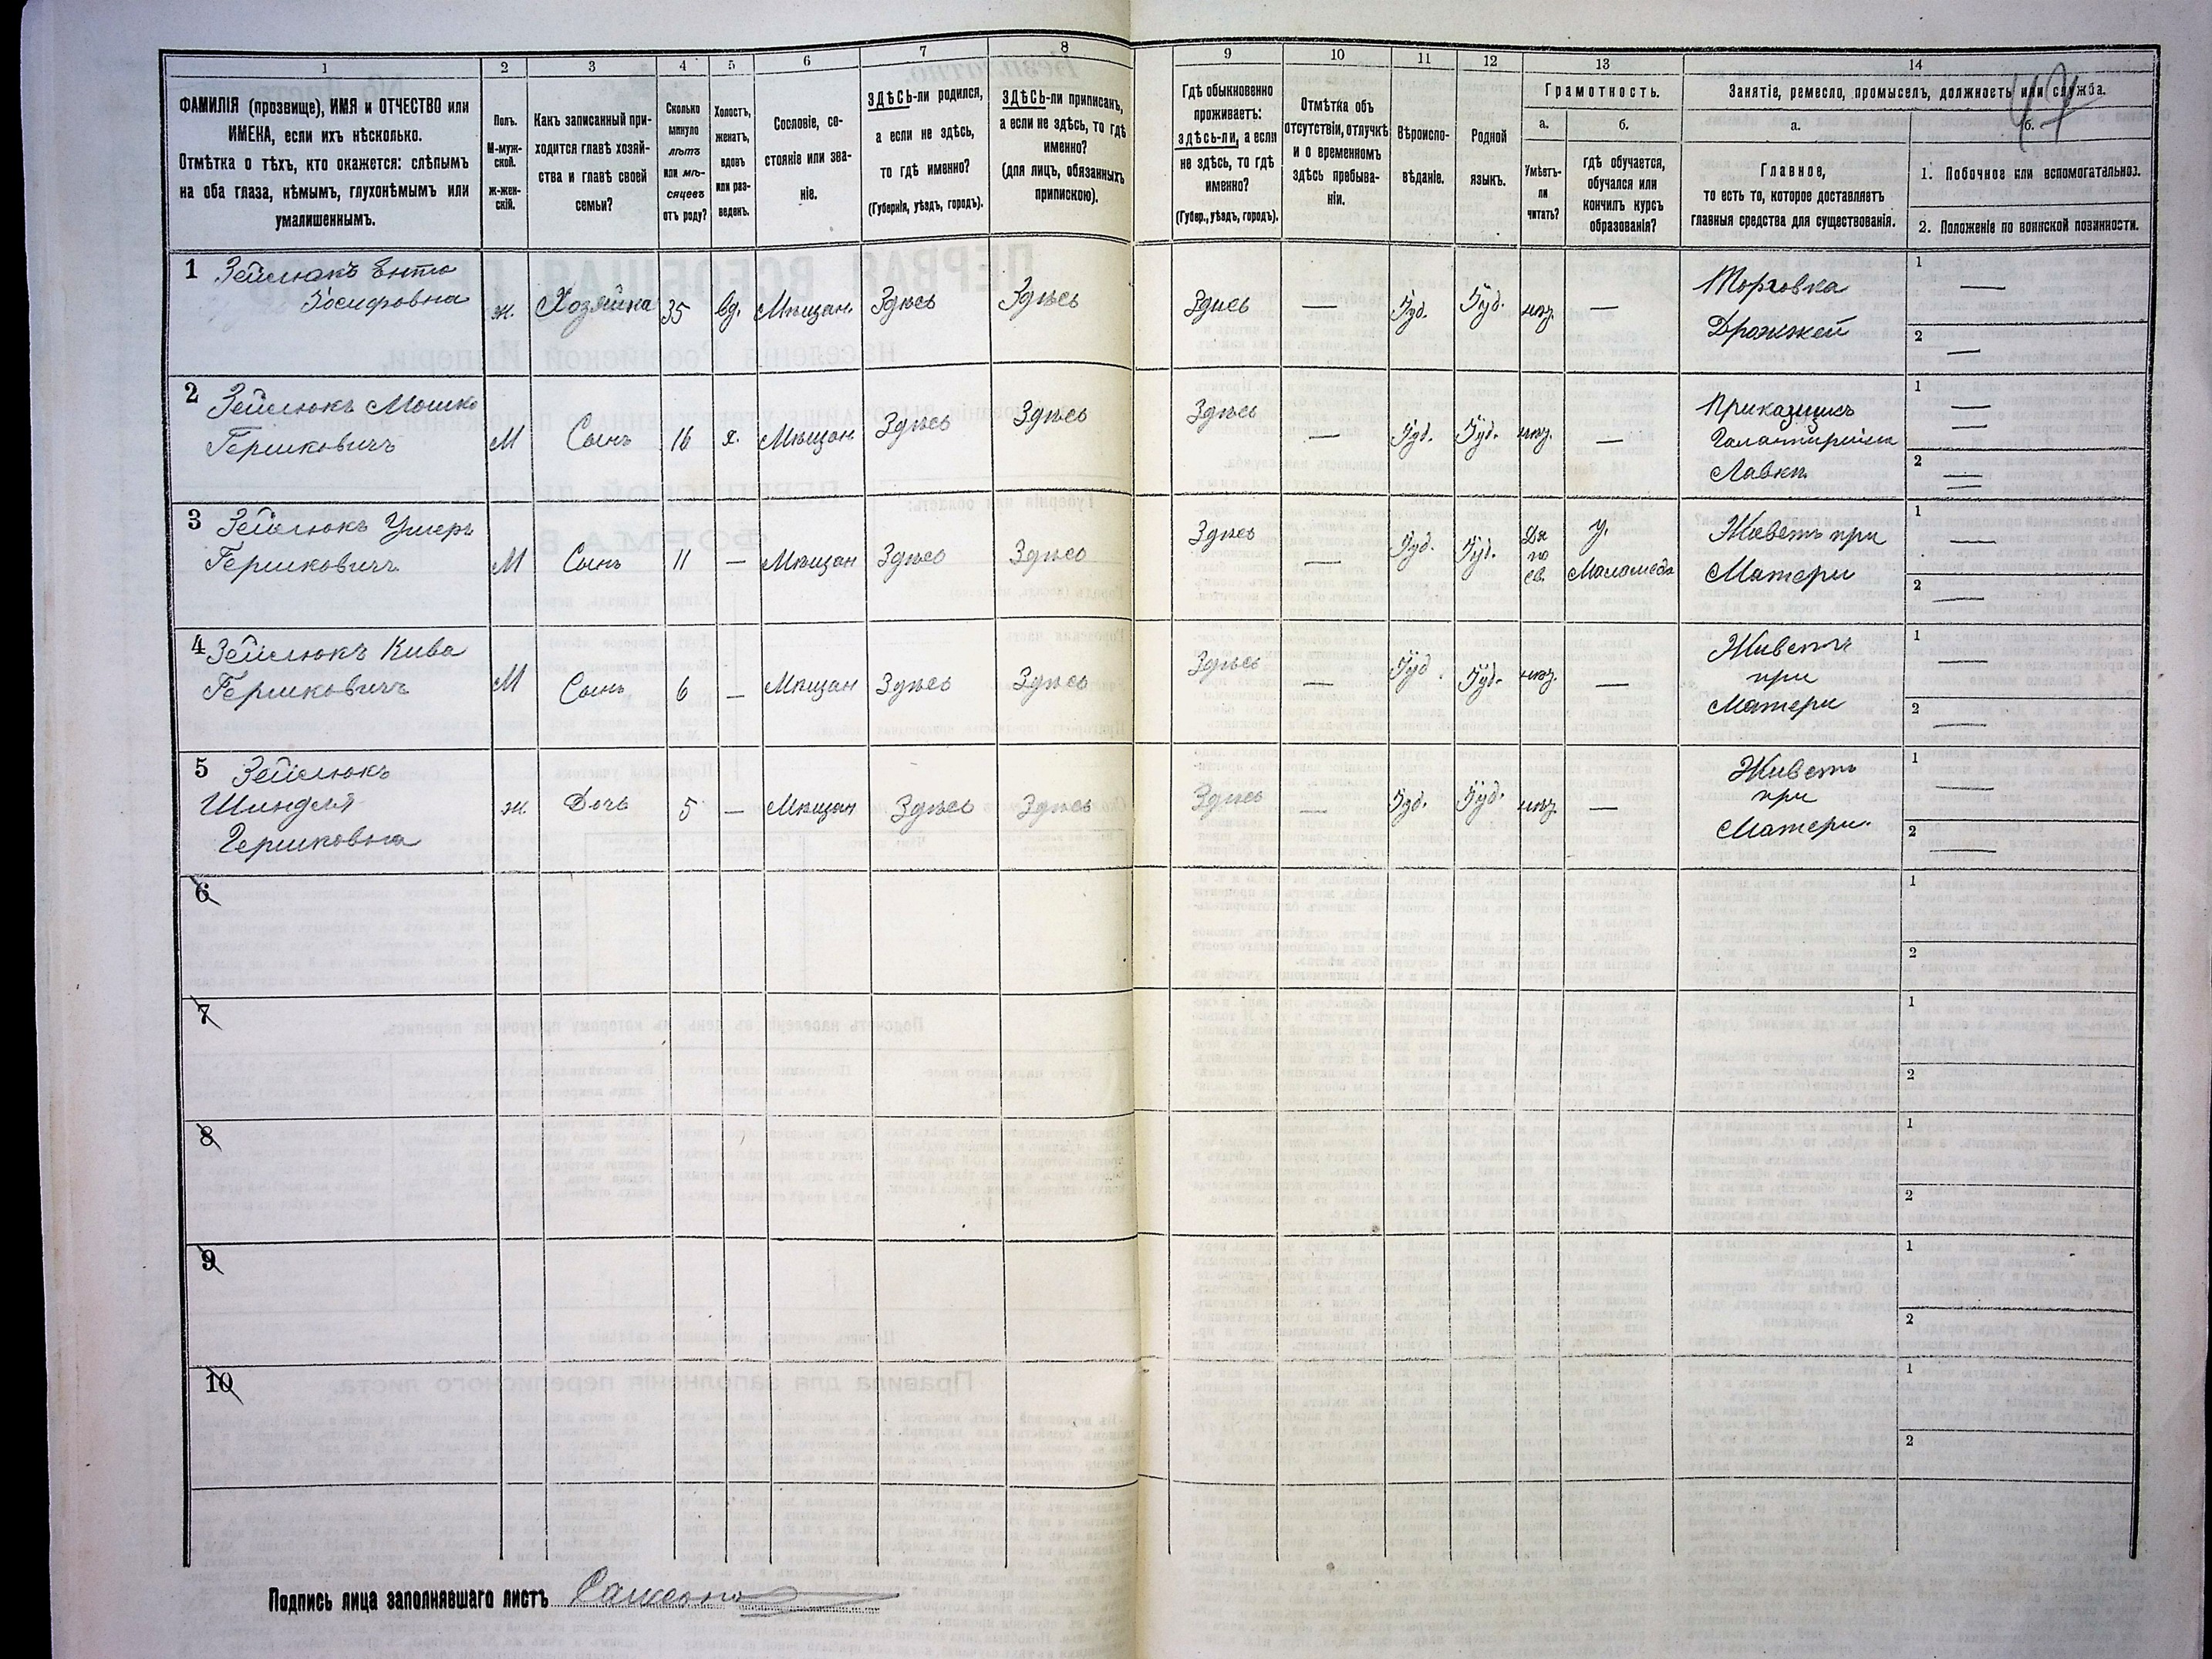 1
2
3
4
5
6
7
8
9
10
11
12
13
14
ФАМИЛІЯ (прозвище), ИМЯ и ОТЧЕСТВО или
ИМЕНА, если ихъ нѣсколько.
Отмѣтка о тѣхъ, кто окажется: слѣпымъ
на оба глаза, нѣмымъ, глухонѣмымъ или
умалишеннымъ.
Полъ.
М-муж-
ской.
Ж-жен-
скій.
Какъ записанный при-
ходится главѣ хозяй-
ства и главѣ своей
семьи?
Сколько
минуло
лѣтъ
или мѣ-
сяцевъ
отъ роду?
Холостъ,
женатъ,
вдовъ
или раз-
веденъ.
Сословіе, со-
стояніе или зва-
ніе.
ЗДѢСЬ-ли родился,
а если не здѣсь,
то гдѣ именно?
(Губернія, уѣздъ, городъ).
ЗДѢСЬ-ли приписанъ,
а если не здѣсь, то гдѣ
именно?
(для лицъ, обязанныхъ
припискою).
Гдѣ обыкновенно
проживаетъ:
здѣсь-ли, а если
не здѣсь, то гдѣ
именно?
(Губер., уѣздъ, городъ).
Отмѣтка объ
отсутствіи, отлучкѣ
и о временномъ
здѣсь пребыва-
ніи.
Вѣроиспо-
вѣданіе.
Родной
языкъ.
Грамотность.
а.
Умѣетъ-
ли
читать?
б.
гдѣ обучается,
обучался или
кончилъ курсъ
образованія?
Занятіе, ремесло, промыселъ, должность или служба.
47
а.
Главное,
то есть то, которое доставляетъ
главныя средства для существованія.
б.
1. Побочное или вспомогательное.
2. Положеніе по воинской повинности.
1 Зейслюкъ Ента
Іосифовна
ж. Хозяйка 35 вд. Мѣщан. Здѣсь Здѣсь Здѣсь — Іуд. Іуд. нѣт. —
Торговка
Дрожжей
1 —
2 —
2 Зейслюкъ Мошко
Гершковичъ
М Сынъ 16 х. Мѣщан Здѣсь Здѣсь Здѣсь — Іуд. Іуд. нѣт. —
Приказчикъ
Лавки
1 —
2 —
3 Зейслюкъ Умеръ
Гершковичъ
М Сынъ 11 — Мѣщан Здѣсь Здѣсь Здѣсь — Іуд. Іуд.
Да
по
ев.
У.
Меламеда
Живетъ при
Матери
1 —
2 —
4 Зейслюкъ Кива
Гершковичъ
М Сынъ 6 — Мѣщан Здѣсь Здѣсь Здѣсь — Іуд. Іуд. нѣт. —
Живетъ
при
Матери
1 —
2 —
5 Зейслюкъ
Шиндля
Гершковна
ж. Дочь 5 — Мѣщан Здѣсь Здѣсь Здѣсь — Іуд. Іуд. нѣт. —
Живетъ
при
Матери.
1 —
2 —
6
1
2
7
1
2
8
1
2
9
1
2
10
1
2
Подпись лица заполнявшаго листъ